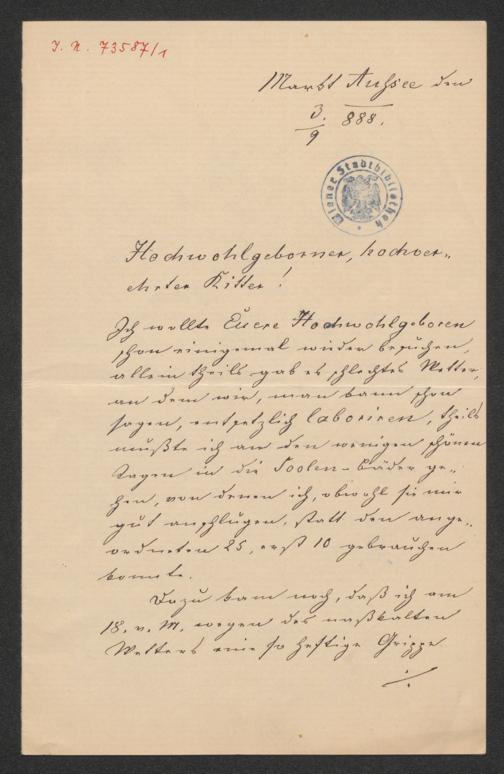 I. N. 73587/1
Markt Aussee den
3./9 888.
Wiener Stadtbibliothek
Hochwohlgeborner, hochver-
ehrter Ritter!
Ich wollte Euere Hochwohlgeboren
schon einigemal wieder besuchen,
allein theils gab es schlechtes Wetter,
an dem wir, man kann schon
sagen, entsetzlich laboriren, theils
mußte ich an den wenigen schönen
Tagen in die Soolen-bäder ge-
hen, von denen ich, obwohl sie mir
gut anschlugen, statt den ange-
ordneten 25, erst 10 gebrauchen
konnte.
Dazu kam noch, daß ich am
18. v. M. wegen des naßkalten
Wetters eine so heftige Grippe
./.